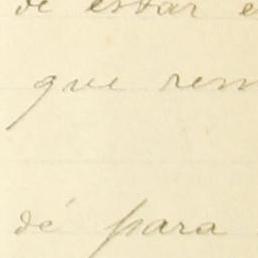 de estar e
que rem
dé para